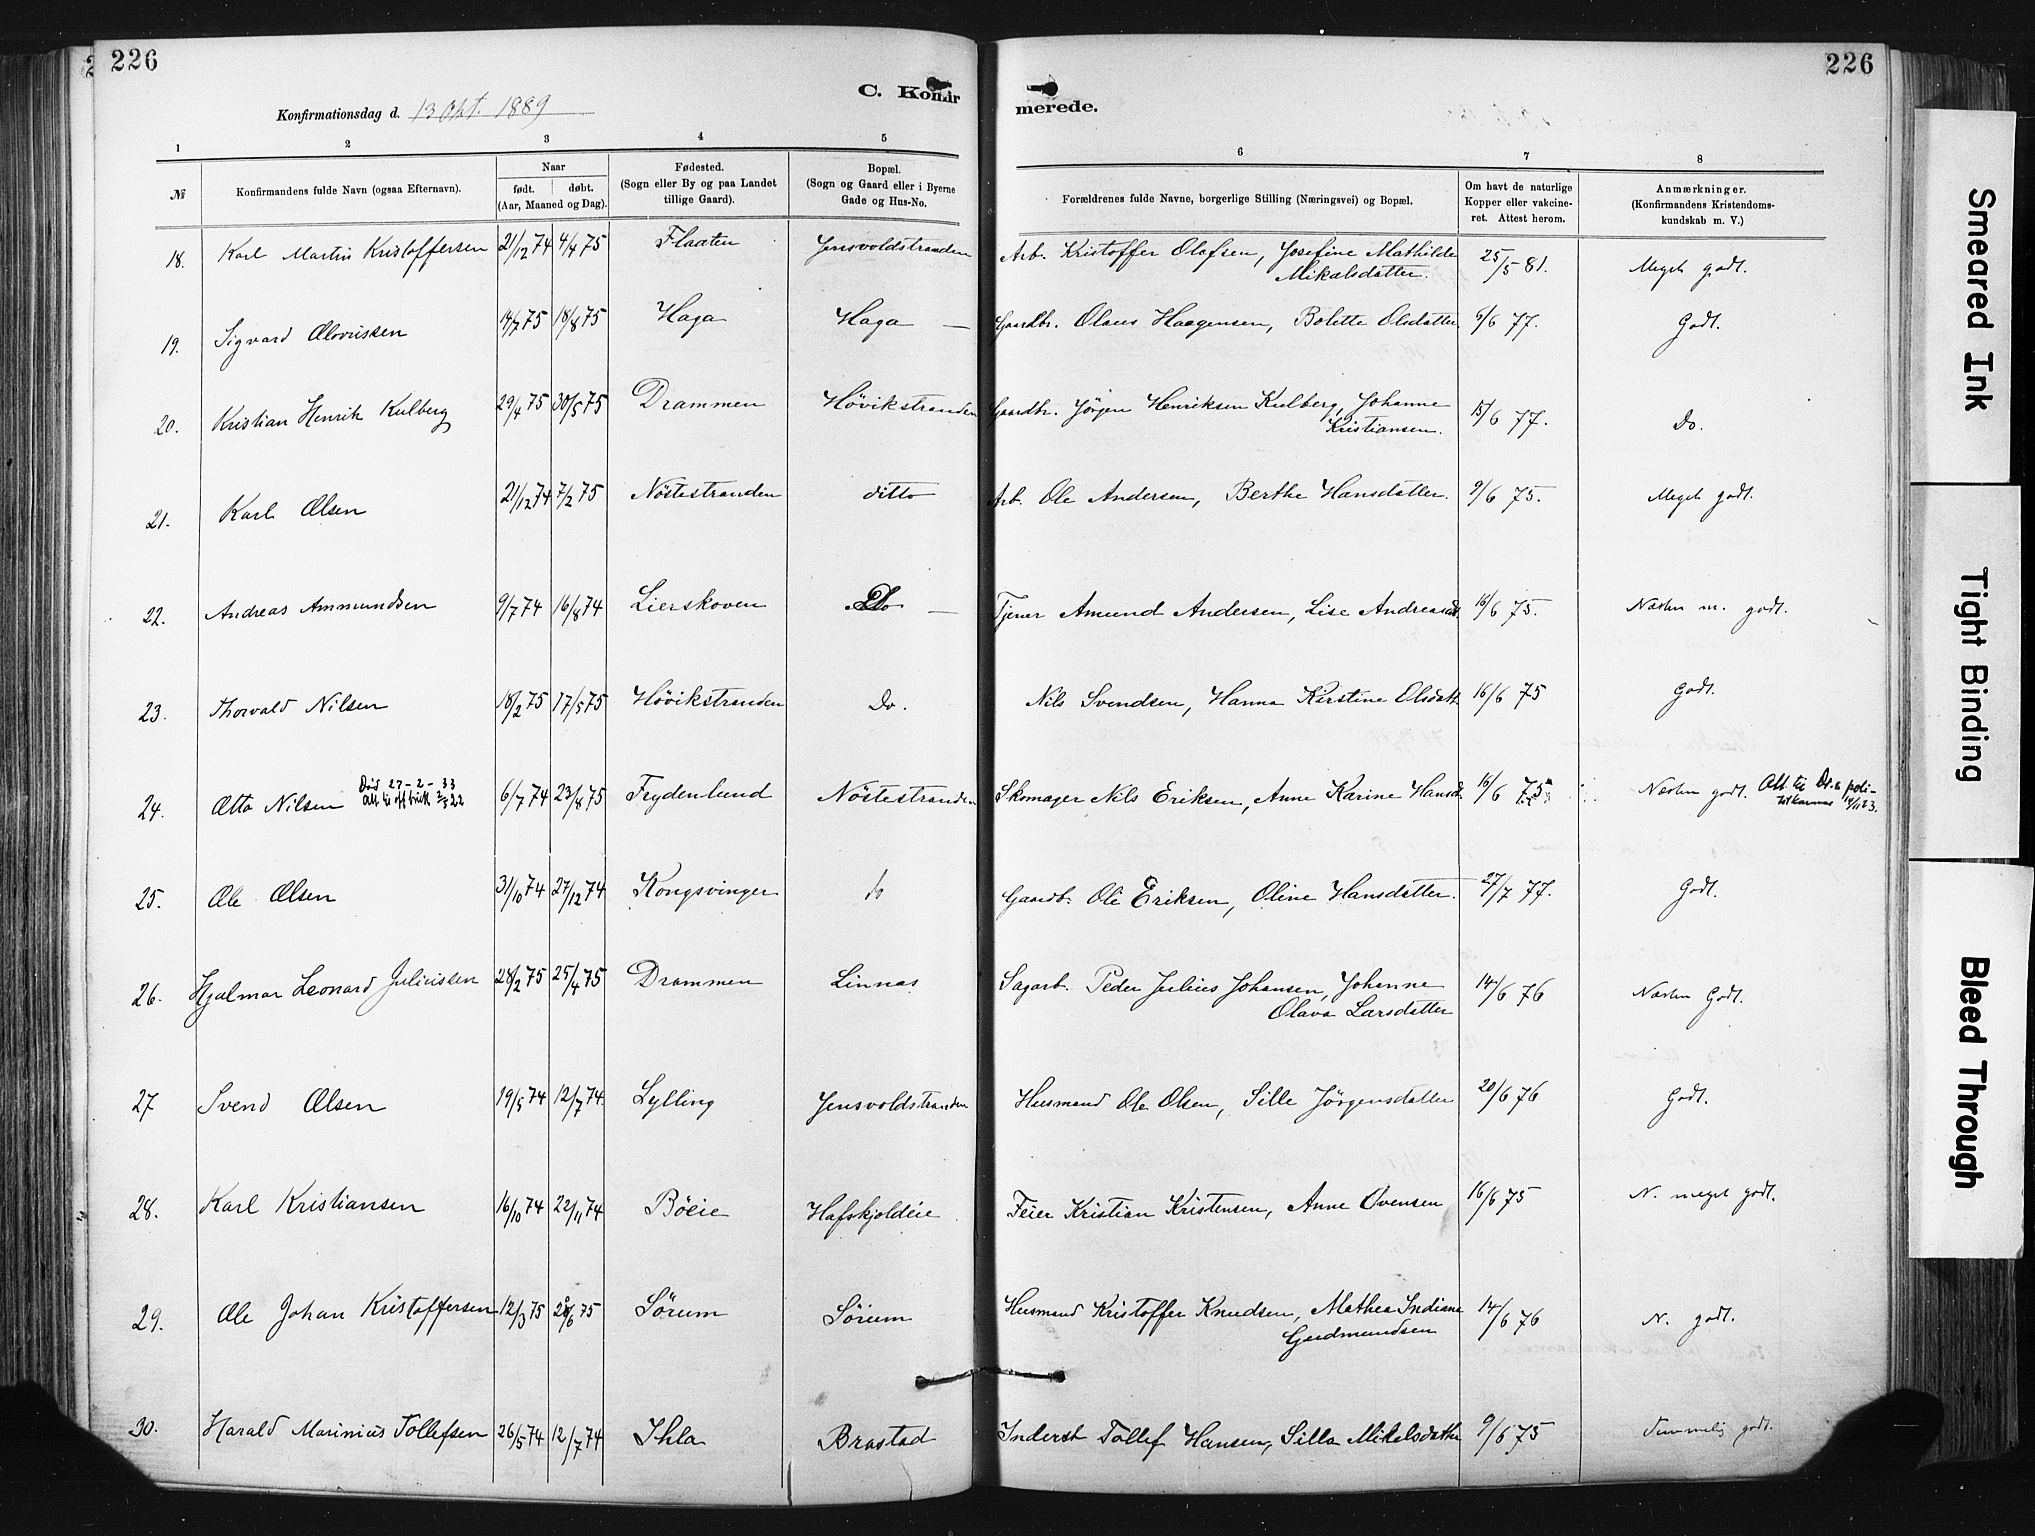 226
226
C. Konfir
merede.
Konfirmationsdag d. 13 Okt. 1889
1 2 3 4 5 6 7 8
№
Konfirmandens fulde Navn (ogsaa Efternavn).
Naar
født. døbt.
(Aar, Maaned og Dag).
Fødested.
(Sogn eller By og paa Landet
tillige Gaard).
Bopæl.
(Sogn og Gaard eller i Byerne
Gade og Hus-No.
Forældrenes fulde Navne, borgerlige Stilling (Næringsvei) og Bopæl.
Om havt de naturlige
Kopper eller vakcine-
ret. Attest herom.
Anmærkninger.
(Konfirmandens Kristendoms-
kundskab m. V.)
18. Karl Martin Kristoffersen 21/12 74 4/4 75 Flaaten Jensvoldstranden Arb. Kristoffer Olafsen, Josefine Mathilde 25/5 81. Meget godt.
Mikalsdatter.
19. Sigvard Olavussen 14/7 75 18/8 75 Haga Haga — Gaardbr. Olaus Haagensen, Bolette Olsdatter 6/6 77. Godt.
20. Kristian Henrik Kulberg 29/4 75 30/5 75 Drammen Høvikstranden Gaardbr. Jørgen Henriksen Kulberg, Johanne 15/6 77. Do.
Kristiansen.
21. Karl Olsen 21/12 74 7/2 75 Nøstestranden ditto Arb. Ole Andersen, Berthe Hansdatter. 9/6 75. Meget godt.
22. Andreas Ammundsen 9/7 74 16/8 74 Lierskoven Do — Tjener Amund Andersen, Lise Andreasd. 16/6 75. Næsten m. godt.
23. Thorvald Nilsen 18/2 75 17/5 75 Høvikstranden Do. Nils Svendsen, Hanna Kirstine Olsdatt. 16/6 75 Godt.
24. Otto Nilsen Død 27-2-33 6/7 74 23/8 75 Frydenlund Nøstestranden Skomager Nils Eriksen, Anne Karine Hansd. 16/6 75 Næsten godt. Att. til Dr.s poli-
25. Ole Olsen 31/10 74 27/12 74 Kongsvinger do Gaardb. Ole Eriksen, Oline Hansdatter. 27/7 77. Godt.
26. Hjalmar Leonard Juliussen 28/2 75 25/4 75 Drammen Linnas Sagarb. Peder Julius Johansen, Johanne 14/6 76 Næsten Godt.
Olava Larsdatter
27 Svend Olsen 19/5 74 12/7 74. Lylling Jensvoldstranden Husmand Ole Olsen, Sille Jørgensdatter 20/6 76 Godt.
28. Karl Kristiansen 16/10 74 22/11 74 Bøeie Hafskjoldeie Feier Kristian Kristensen, Anne Ovensen 16/6 75 N. meget godt.
29. Ole Johan Kristoffersen 12/3 75 Sørum Sørum Husmand Kristoffer Knudsen, Mathea Indiane 14/6 76 N. godt.
Gudmundsen
30. Harald Marinius Tollefsen 26/5 74 12/7 74 Ihle Brastad Inderst Tollef Hansen, Silla Mikelsdatter 9/6 75 Temmelig godt.
Smeared Ink
Tight Binding
Bleed Through